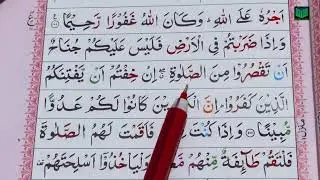 اَجْرُهٗ عَلَی اللّٰهِ ؕ وَکَانَ اللّٰهُ غَفُوْرًا رَّحِیْمًا
وَاِذَا ضَرَبْتُمْ فِی الْاَرْضِ فَلَیْسَ عَلَیْکُمْ جُنَاحٌ
اَنْ تَقْصُرُوْا مِنَ الصَّلٰوةِ ۖ اِنْ خِفْتُمْ اَنْ یَّفْتِنَکُمُ
الَّذِیْنَ کَفَرُوْا ؕ اِنَّ الْکٰفِرِیْنَ کَانُوْا لَکُمْ عَدُوًّا
مُّبِیْنًا وَاِذَا کُنْتَ فَاَقَمْتَ لَهُمُ الصَّلٰوةَ
فَلْتَقُمْ طَآئِفَةٌ مِّنْهُمْ مَّعَكَ وَلْیَاْخُذُوْۤا اَسْلِحَتَهُمْ